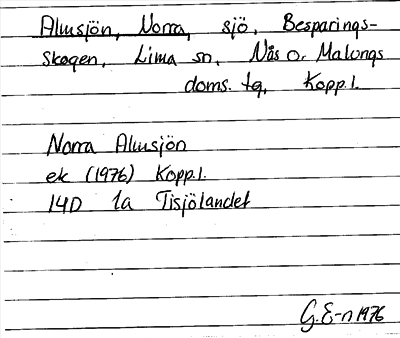 Almsjön, Norra, sjö, Besparings-
skogen, Lima sn, Nås o. Malungs
doms. tg, Kopp.l.
Norra Almsjön
ek (1976) Kopp.l.
14D 1a Tisjölandet
G.E-n 1976